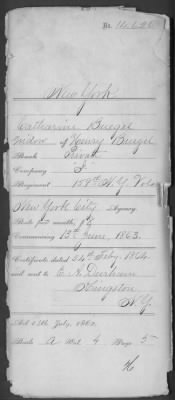 No. 14,626
New York
Catharine Buegel
Widow of Henry Buegel
Rank Private
Company "I"
Regiment 159th N.Y. Vols
New York City Agency.
Rate per month, $8
Commencing 13th June, 1863.
Certificate dated Feby. 1864
and sent to E. A. Durham
Kingston
N.Y.
Act 14th July, 1862.
Book A Vol. 4 Page 5